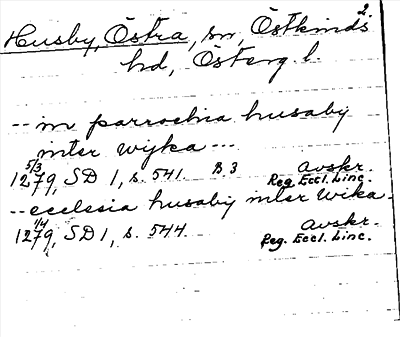 2.
Husby, Östra, sn, Östkinds
hd, Österg. l.
-- in parrochia husaby
inter wijka ---
5/3
1279, SD 1, s. 541. B. 3 Avskr.
Reg. Eccl. Linc.
-- ecclesia husaby inter wika -
1/4
1279, SD 1, s. 544 Avskr.
Reg. Eccl. Linc.